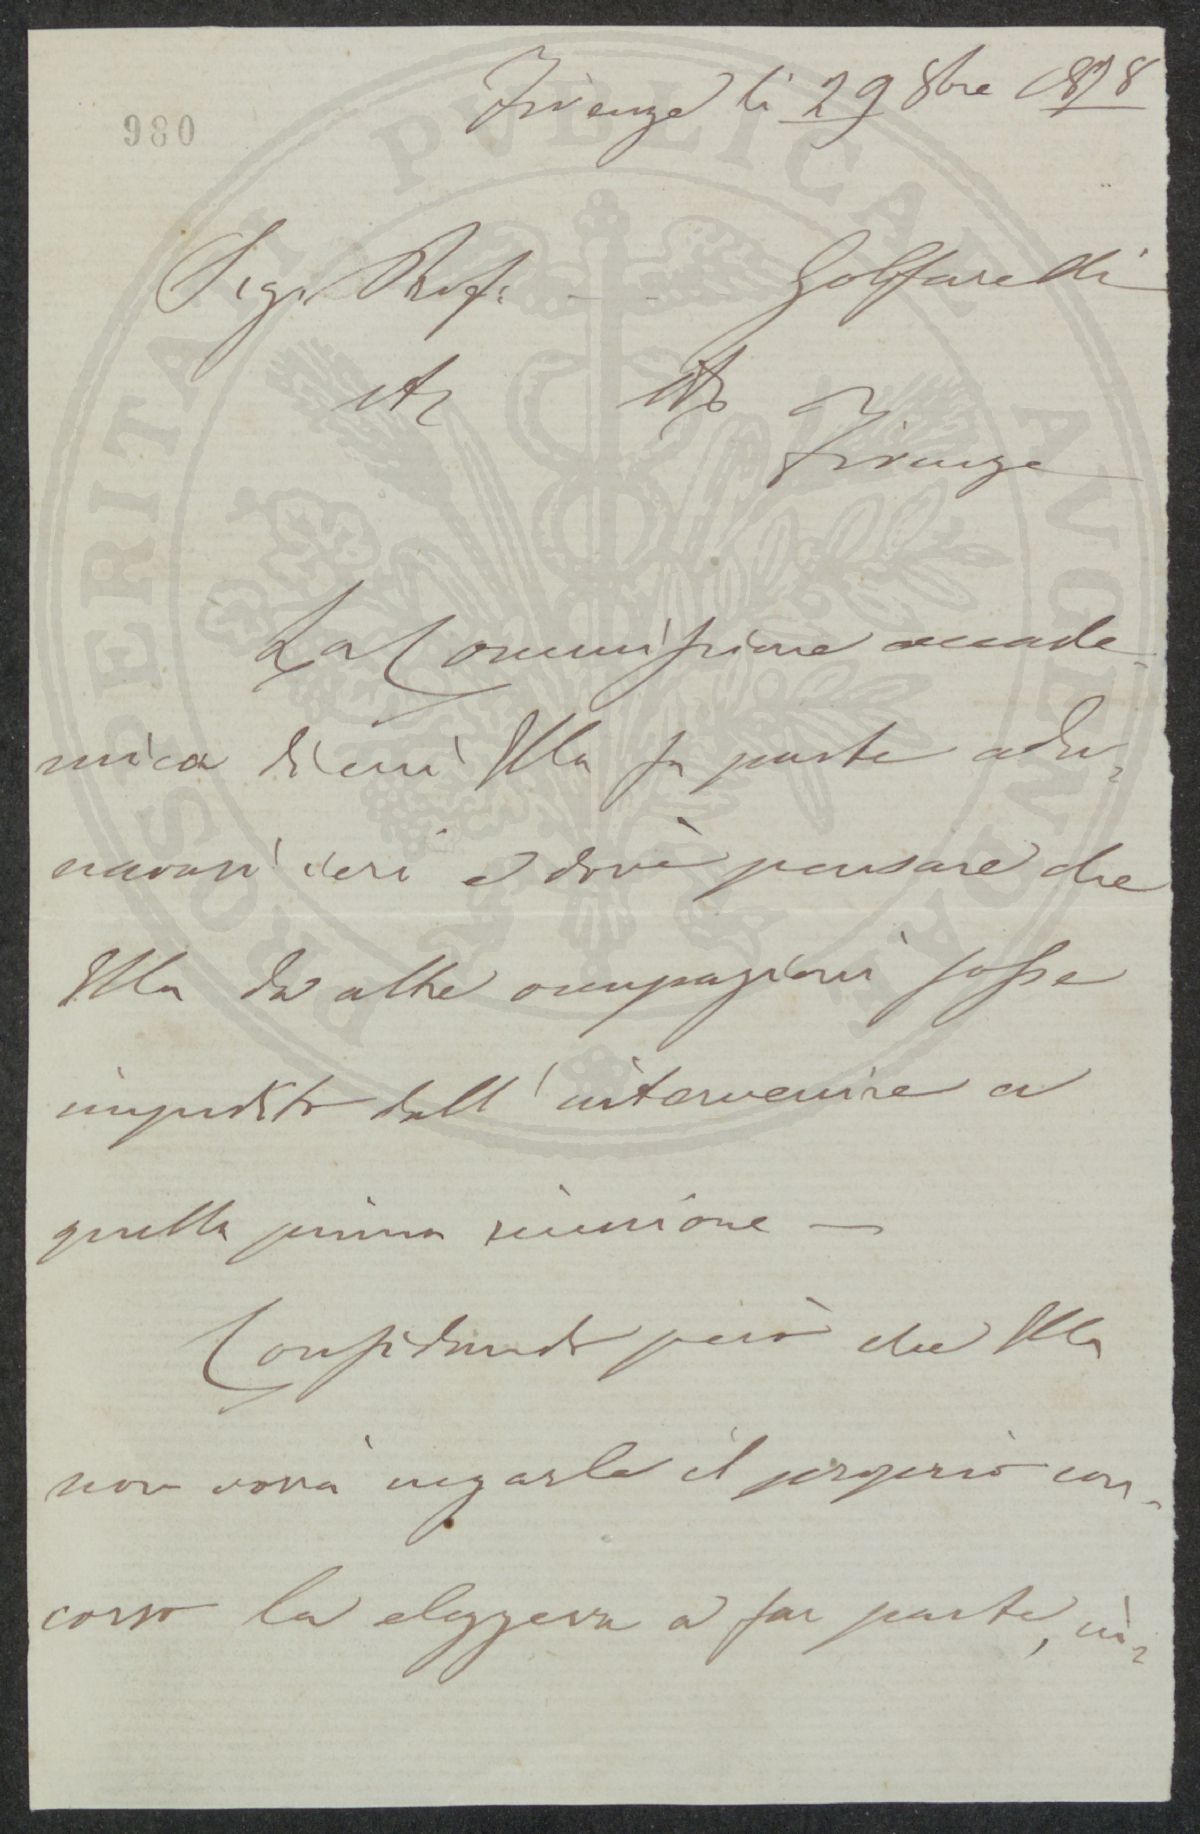 980
Firenze li 29 8bre 1878
Sigr. Prof. Golfarelli
etc etc
Firenze
La Commissione accade-
mica di cui Ella fa parte adu-
navasi ieri e dovè pensare che
Ella da altre occupazioni fosse
impedito dall'intervenire a
quella prima riunione —
Confidando però che Ella
non vorrà negarle il proprio con-
corso la eleggeva a far parte, in-
PROSPERITATI PVBLICAE AVGENDAE